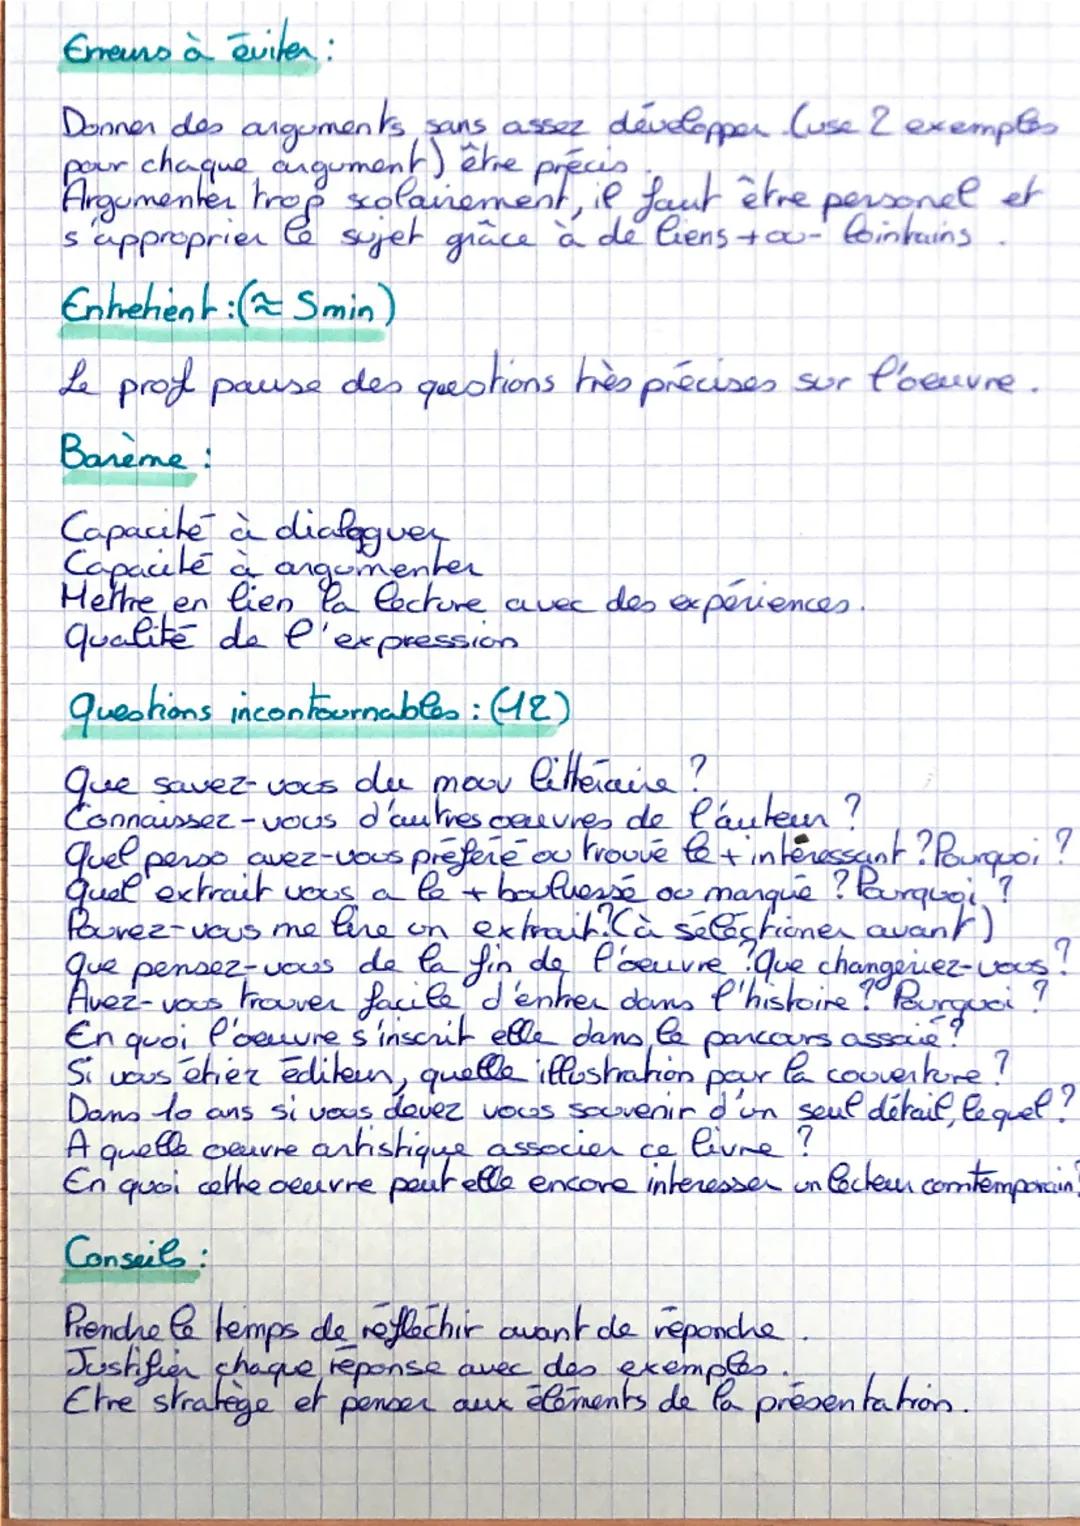 Erreurs à éviter :
Donner des arguments sans assez développer (use 2 exemples
pour chaque argument) être précis.
Argumenter trop scolairement, il faut être personel et
s'approprier le sujet grâce à de liens + ou - lointains.
Entretient : (≈ 5 min)
Le prof pause des questions très précises sur l'oeuvre.
Barème :
Capacité à dialoguer
Capacité à argumenter
Mettre en lien la lecture avec des expériences.
Qualité de l'expression
Questions incontournables : (12)
Que savez-vous du mouv littéraire ?
Connaissez-vous d'autres oeuvres de l'auteur ?
Quel perso avez-vous préféré ou trouvé le + intéressant ? Pourquoi ?
Quel extrait vous a le + boulversé ou marqué ? Pourquoi ?
Pouvez-vous me lire un extrait ? (à séléctioner avant)
Que pensez-vous de la fin de l'oeuvre ? Que changeriez-vous ?
Avez-vous trouver facile d'entrer dans l'histoire ? Pourquoi ?
En quoi l'oeuvre s'inscrit elle dans le parcours associé ?
Si vous étiez éditeur, quelle illustration pour la couverture ?
Dans 10 ans si vous devez vous souvenir d'un seul détail, lequel ?
A quelle oeuvre artistique associer ce livre ?
En quoi cette oeuvre peut elle encore interesser un lecteur comtemporain ?
Conseils :
Prendre le temps de réfléchir avant de répondre.
Justifier chaque réponse avec des exemples.
Etre stratège et penser aux éléments de la présentation.